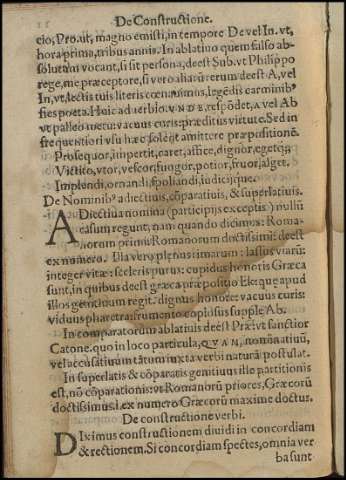 De Constructione.
cio, Pro. ut, magno emisti, in tempore De vel In. vt,
hora prima, tribus annis. In ablatiuo quem falso ab-
solutum vocant, si sit persona, deest Sub. vt Philippo
rege, me præceptore, si vero aliarū rerum deest A, vel
In, vt, lectis tuis literis cœnauimus, legēdis carminib⁹
fies poeta. Huic aduerbio. VNDE. respōdet, a vel Ab
vt palleo metu: vacuus curis: præditus virtute. Sed in
frequentiori vsu hæc solent amittere præpositionē.
Prosequor, impertit, caret, affice, dignor, egetq́;
Victito, vtor, vescor, fungor, potior, fruor, alget.
Implendi, ornandi, spoliandi, iudicijque.
De Nominib⁹ adiectiuis, cōparatiuis, & superlatiuis.
ADiectiua nomina (participijs exceptis) nullū
casum regunt, nam quando dicimus: Roma-
norum primus Romanorum doctissimus: deest
ex numero. Illa vero, plenus rimarum: lassus viarū:
integer vitæ: sceleris purus: cupidus honoris Græca
sunt, in quibus deest græca præpositio Ek: quę apud
illos genitiuum regit. dignus honore: vacuus curis:
viduus pharetra: frumento copiosus supple Ab.
In comparatorum ablatiuis deest Præ. vt sanctior
Catone. quo in loco particula, QVAM, nominatiuū,
vel accusatiuum tātum iuxta verbi naturā postulat.
In superlatis & cōparatis genitiuus ille partitionis
est, nō cōparationis: vt Romanorū priores, Græcorū
doctissimus. i. ex numero Græcorū maxime doctus.
De constructione verbi.
DIximus constructionem diuidi in concordiam
& rectionem. Si concordiam spectes, omnia ver
ba sunt